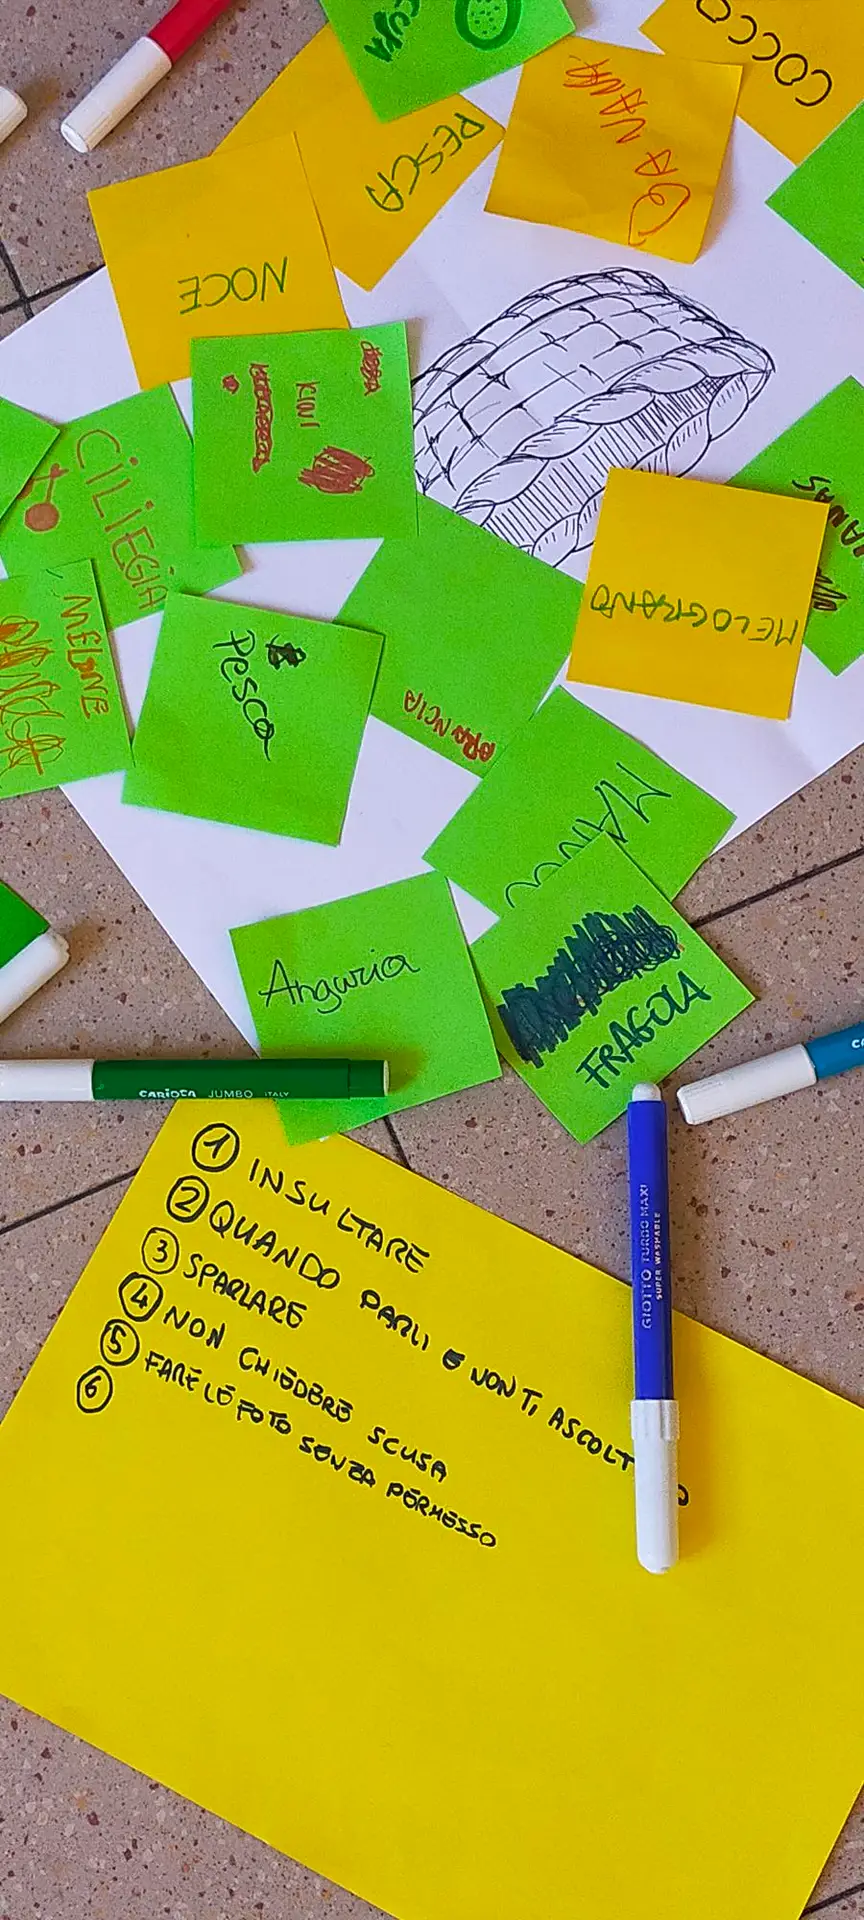 COCCO
PESCA
NOCE
KIWI
CILIEGIA
MELOGRANO
MELONE
Pesca
ARANCIA
MANGO
Anguria
FRAGOLA
CARIOCA JUMBO ITALY
GIOTTO TURBO MAXI
SUPER WASHABLE
1 INSULTARE
2 QUANDO PARLI E NON TI ASCOLT
3 SPARLARE
4 NON CHIEDERE SCUSA
5 FARE LE FOTO SENZA PERMESSO
6